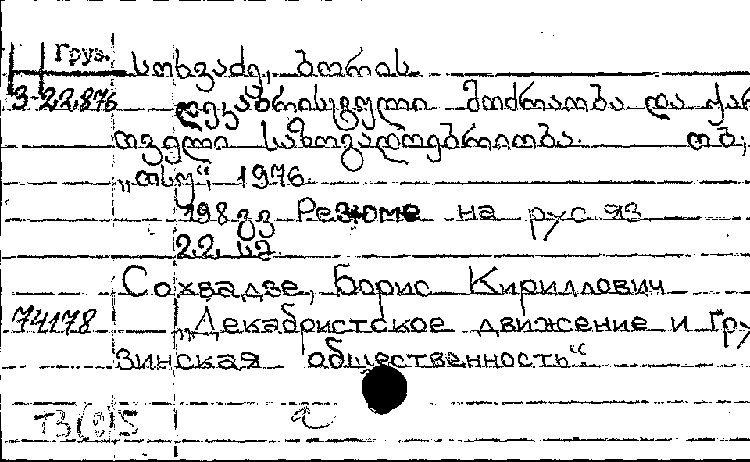 Груз. სოხვაძე, ბორის
3-22.876 დეკაბრისტული მოძრაობა და ქარ
თველი საზოგადოებრიობა. თბ,
„თსუ“, 1976.
198 გვ Резюме на рус яз
22. სმ
Сохвадзе, Борис Кириллович
74178 „Декабристское движение и Гру
зинская общественность“.
ТЗ(0)5